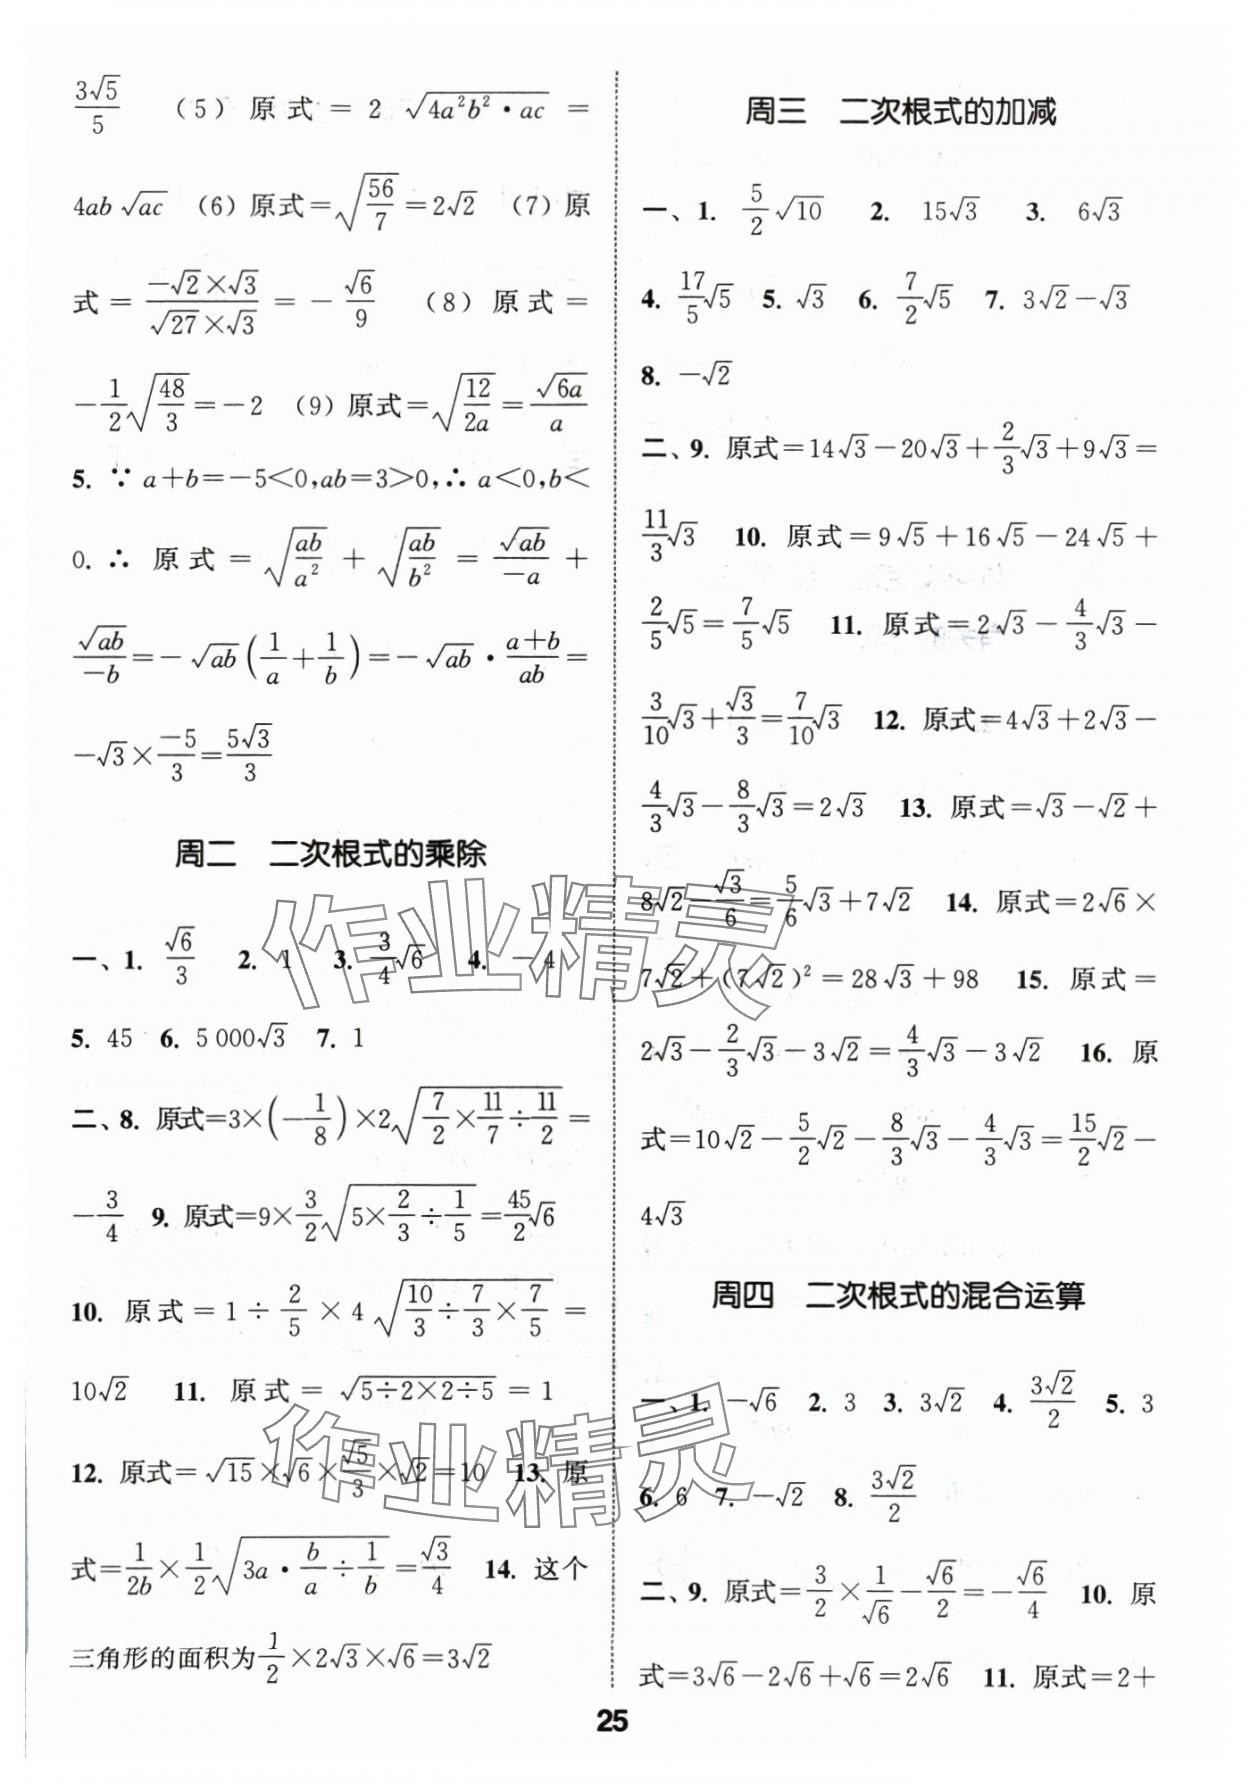 3√5/5 (5) 原式=2√(4a²b²·ac)=
4ab√ac (6) 原式=√(56/7)=2√2 (7) 原
式=(-√2×√3)/(√27×√3)=-√6/9 (8) 原式=
-1/2√(48/3)=-2 (9) 原式=√(12/2a)=√6a/a
5. ∵ a+b=-5<0,ab=3>0,∴ a<0,b<
0. ∴ 原式=√(ab/a²)+√(ab/b²)=√ab/-a+
√ab/-b=-√ab(1/a+1/b)=-√ab·(a+b)/ab=
-√3×-5/3=5√3/3
周二 二次根式的乘除
一、1. √6/3 2. 1 3. 3/4√6 4. -4
5. 45 6. 5 000√3 7. 1
二、8. 原式=3×(-1/8)×2√(7/2×11/7÷11/2)=
-3/4 9. 原式=9×3/2√(5×2/3÷1/5)=45/2√6
10. 原式=1÷2/5×4√(10/3÷7/3×7/5)=
10√2 11. 原式=√(5÷2×2÷5)=1
12. 原式=√15×√6×√5/3×√2=10 13. 原
式=1/2b×1/2√(3a·b/a÷1/b)=√3/4 14. 这个
三角形的面积为1/2×2√3×√6=3√2
周三 二次根式的加减
一、1. 5/2√10 2. 15√3 3. 6√3
4. 17/5√5 5. √3 6. 7/2√5 7. 3√2-√3
8. -√2
二、9. 原式=14√3-20√3+2/3√3+9√3=
11/3√3 10. 原式=9√5+16√5-24√5+
2/5√5=7/5√5 11. 原式=2√3-4/3√3-
3/10√3+√3/3=7/10√3 12. 原式=4√3+2√3-
4/3√3-8/3√3=2√3 13. 原式=√3-√2+
8√2-√3/6=5/6√3+7√2 14. 原式=2√6×
7√2+(7√2)²=28√3+98 15. 原式=
2√3-2/3√3-3√2=4/3√3-3√2 16. 原
式=10√2-5/2√2-8/3√3-4/3√3=15/2√2-
4√3
周四 二次根式的混合运算
一、1. -√6 2. 3 3. 3√2 4. 3√2/2 5. 3
6. 6 7. -√2 8. 3√2/2
二、9. 原式=3/2×1/√6-√6/2=-√6/4 10. 原
式=3√6-2√6+√6=2√6 11. 原式=2+
25
作业精灵
作业精灵